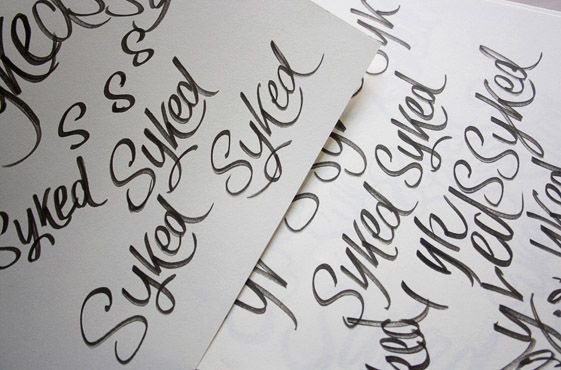 yked
S
S S
Syked
Syked
Syked
Syked
Syked
yk
Syked
Syked
Syked
yk
yked